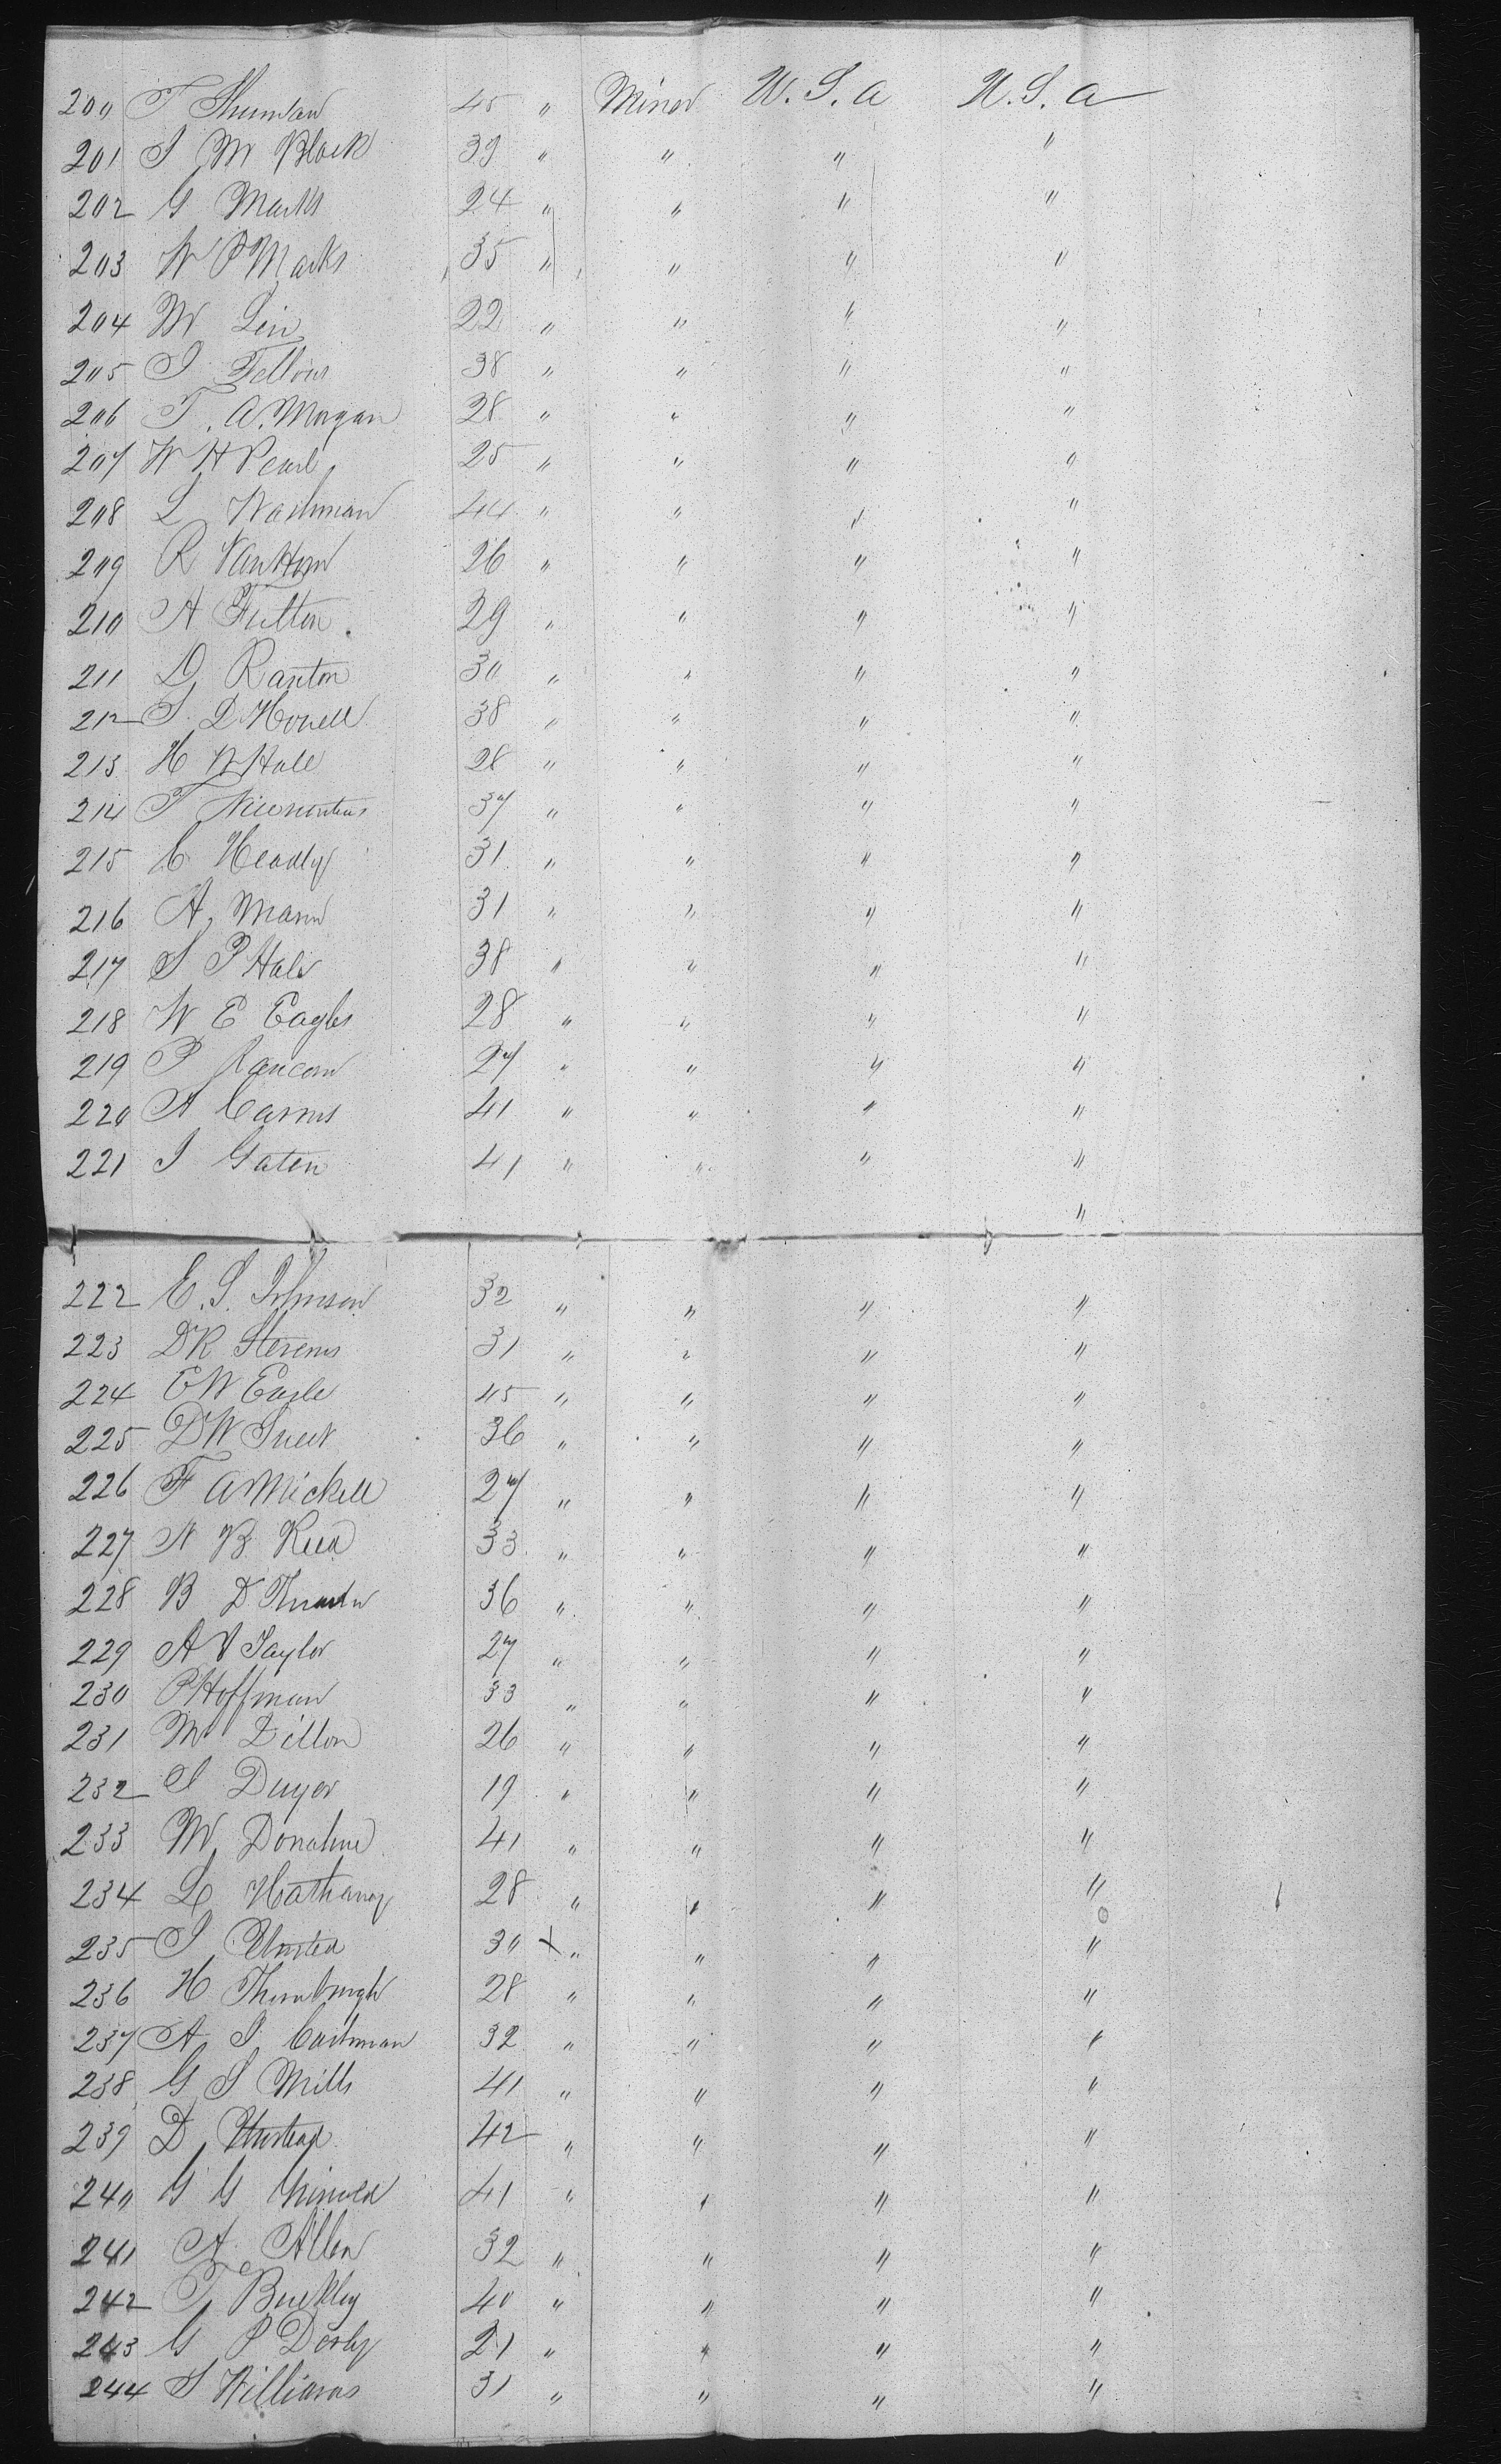 200 T Thurman 45 " Miner U. S. a U. S. a
201 J M Block 39 " " " "
202 G Marks 24 " " " "
203 W P Marks 35 " " " "
204 M Lin 22 " " " "
205 J Fellows 38 " " " "
206 T. A. Morgan 28 " " " "
207 W H Pearl 25 " " " "
208 L Washman 44 " " " "
209 R VanHorn 26 " " " "
210 A Fulton 29 " " " "
211 D Ranton 30 " " " "
212 S D Howell 38 " " " "
213 H W Hale 28 " " " "
214 T 37 " " " "
215 C Headly 31 " " " "
216 A Mann 31 " " " "
217 S P Hale 38 " " " "
218 W E Eagles 28 " " " "
219 P Rancom 27 " " " "
220 A Carnes 41 " " " "
221 J Gaten 41 " " " "
"
222 E. S. Johnson 32 " " " "
223 D R Stevens 31 " " " "
224 E W Eagle 45 " " " "
225 D W Sweet 36 " " " "
226 F A Mickell 27 " " " "
227 A B Reed 33 " " " "
228 B D 36 " " " "
229 A V Taylor 27 " " " "
230 P Hoffman 33 " " " "
231 M Dillon 26 " " " "
232 J Duyer 19 " " " "
233 M Donahue 41 " " " "
234 L Hathaway 28 " " " "
235 J 30 x " " " "
236 H Thornburgh 28 " " " "
237 A J Cashman 32 " " " "
238 G S Mills 41 " " " "
239 D 42 " " " "
240 G G 41 " " " "
241 A Allen 32 " " " "
242 T Buckley 40 " " " "
243 G P Derby 21 " " " "
244 S Williams 31 " " " "